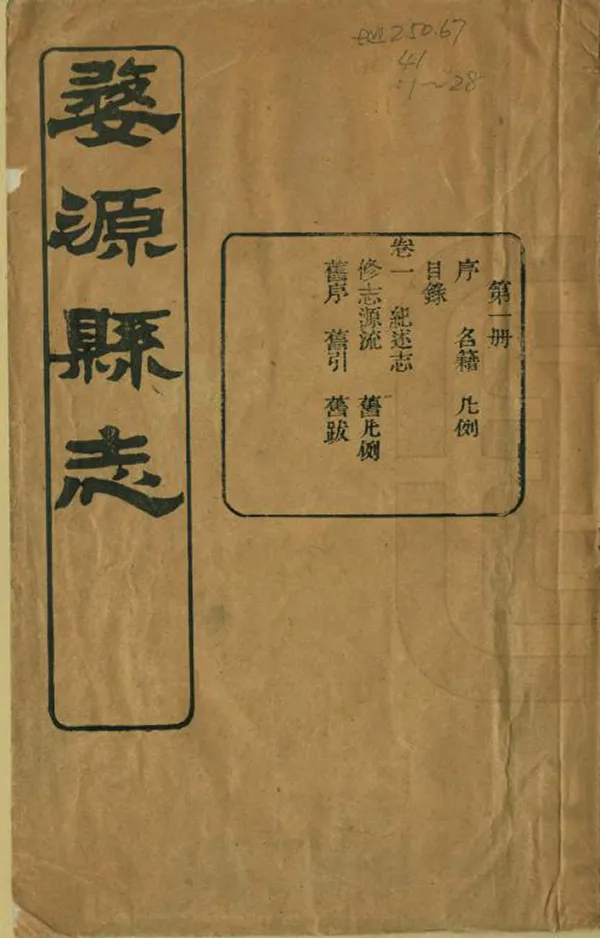 婺源縣志
第一册
序 名籍 凡例
目錄
卷一 紀述志
修志源流 舊凡例
舊序 舊引 舊跋
250.67
41
:1~28